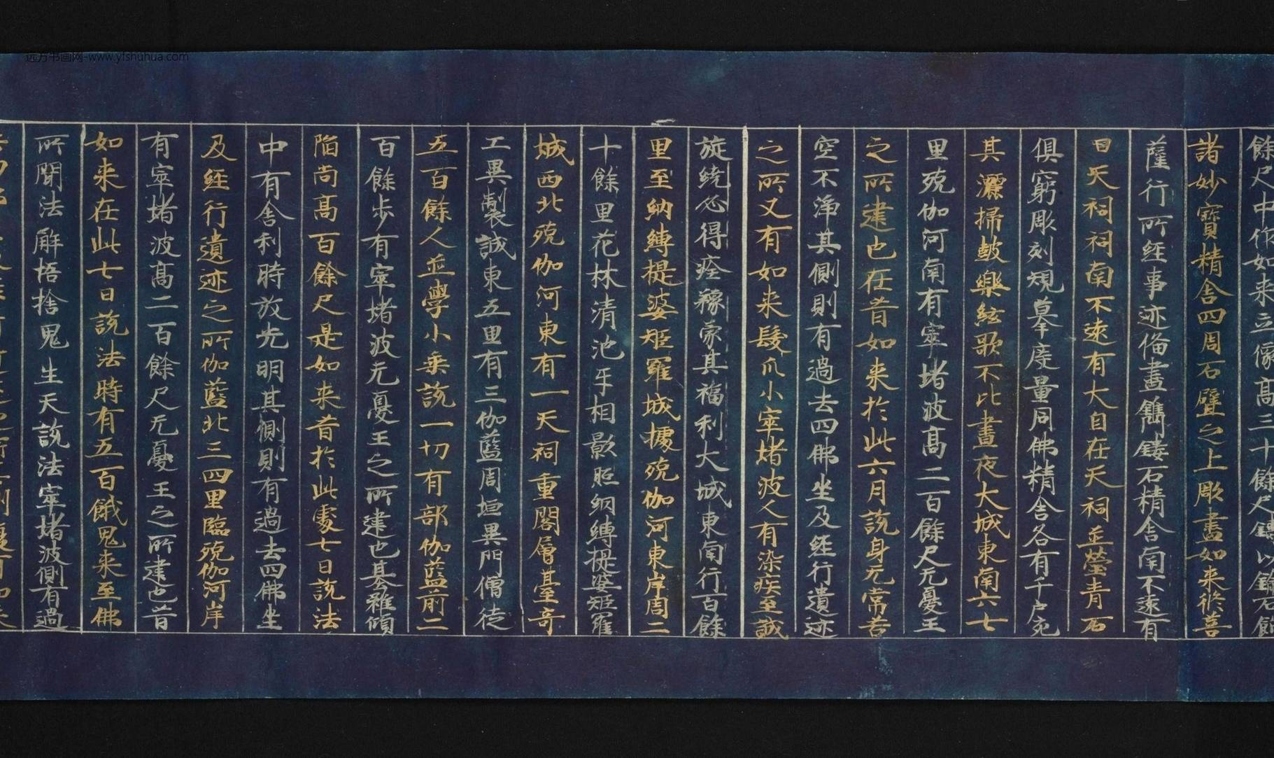 餘尺中作如來立像高三十餘尺鑄以鍮石飾
諸妙寶精舍四周石壁之上彫畫如來修菩
薩行所經事迹俻盡鐫鏤石精舍南不遠有
日天祠祠南不遠有大自在天祠並瑩青石
俱窮彫刻規摹度量同佛精舍各有千戶充
其灑掃鼓樂絃歌不比晝夜大城東南六七
里殑伽河南有窣堵波高二百餘尺无憂王
之所建也在昔如來於此六月說身无常苦
空不淨其側則有過去四佛坐及経行遺迹
之所又有如來髮爪小窣堵波人有染疾至誠
旋繞必得痊豫家其福利大城東南行百餘
里至納縛提婆矩羅城據殑伽河東岸周二
十餘里花林清池互相影照納縛提婆矩羅
城西北殑伽河東有一天祠重閣層臺奇
工異製誠東五里有三伽藍周垣異門僧徒
五百餘人並學小乗說一切有部伽藍前二
百餘步有窣堵波无憂王之所建也基雖傾
陷尚高百餘尺是如來昔於此處七日說法
中有舍利時放光明其側則有過去四佛坐
及経行遺迹之所伽藍北三四里臨殑伽河岸
有窣堵波高二百餘尺无憂王之所建也昔
如來在此七日說法時有五百餓鬼來至佛
所聞法解悟捨鬼生天說法窣堵波側有過
远方书画网-www.yfshuhua.com